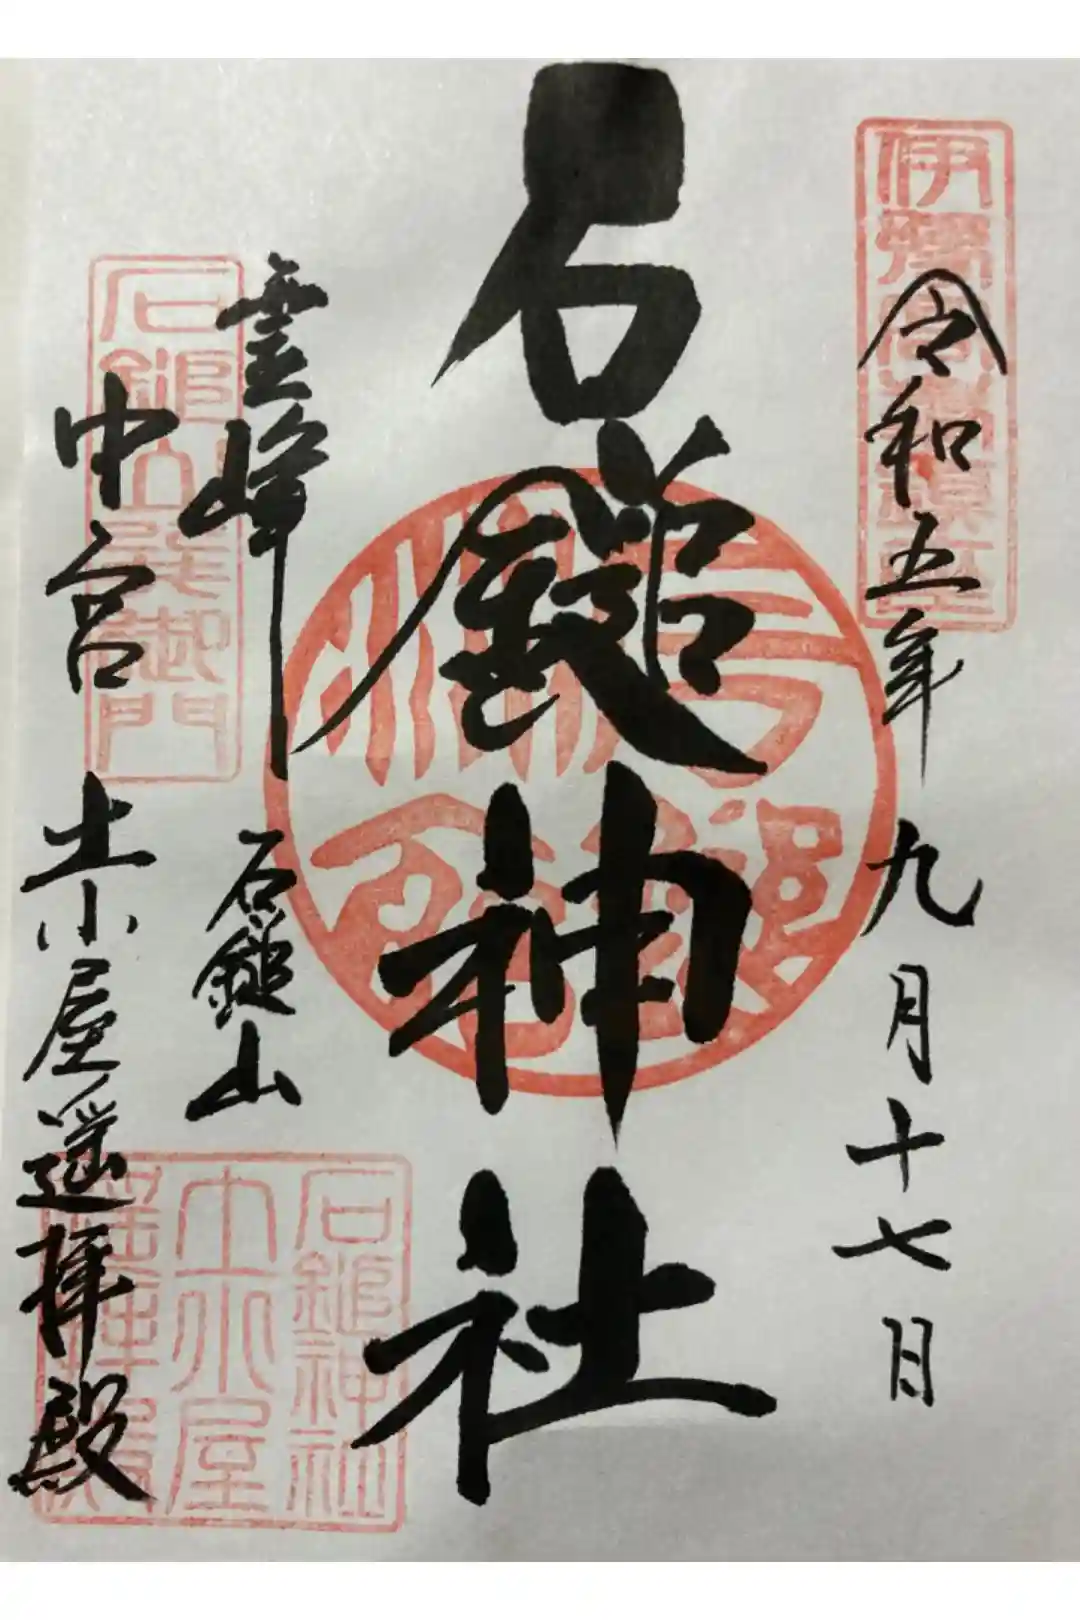 令和五年九月十七日
石鎚神社
霊峰
石鎚山
中宮
土小屋遥拝殿
石鎚山
御門
石鎚神社
土小屋
遥拝殿